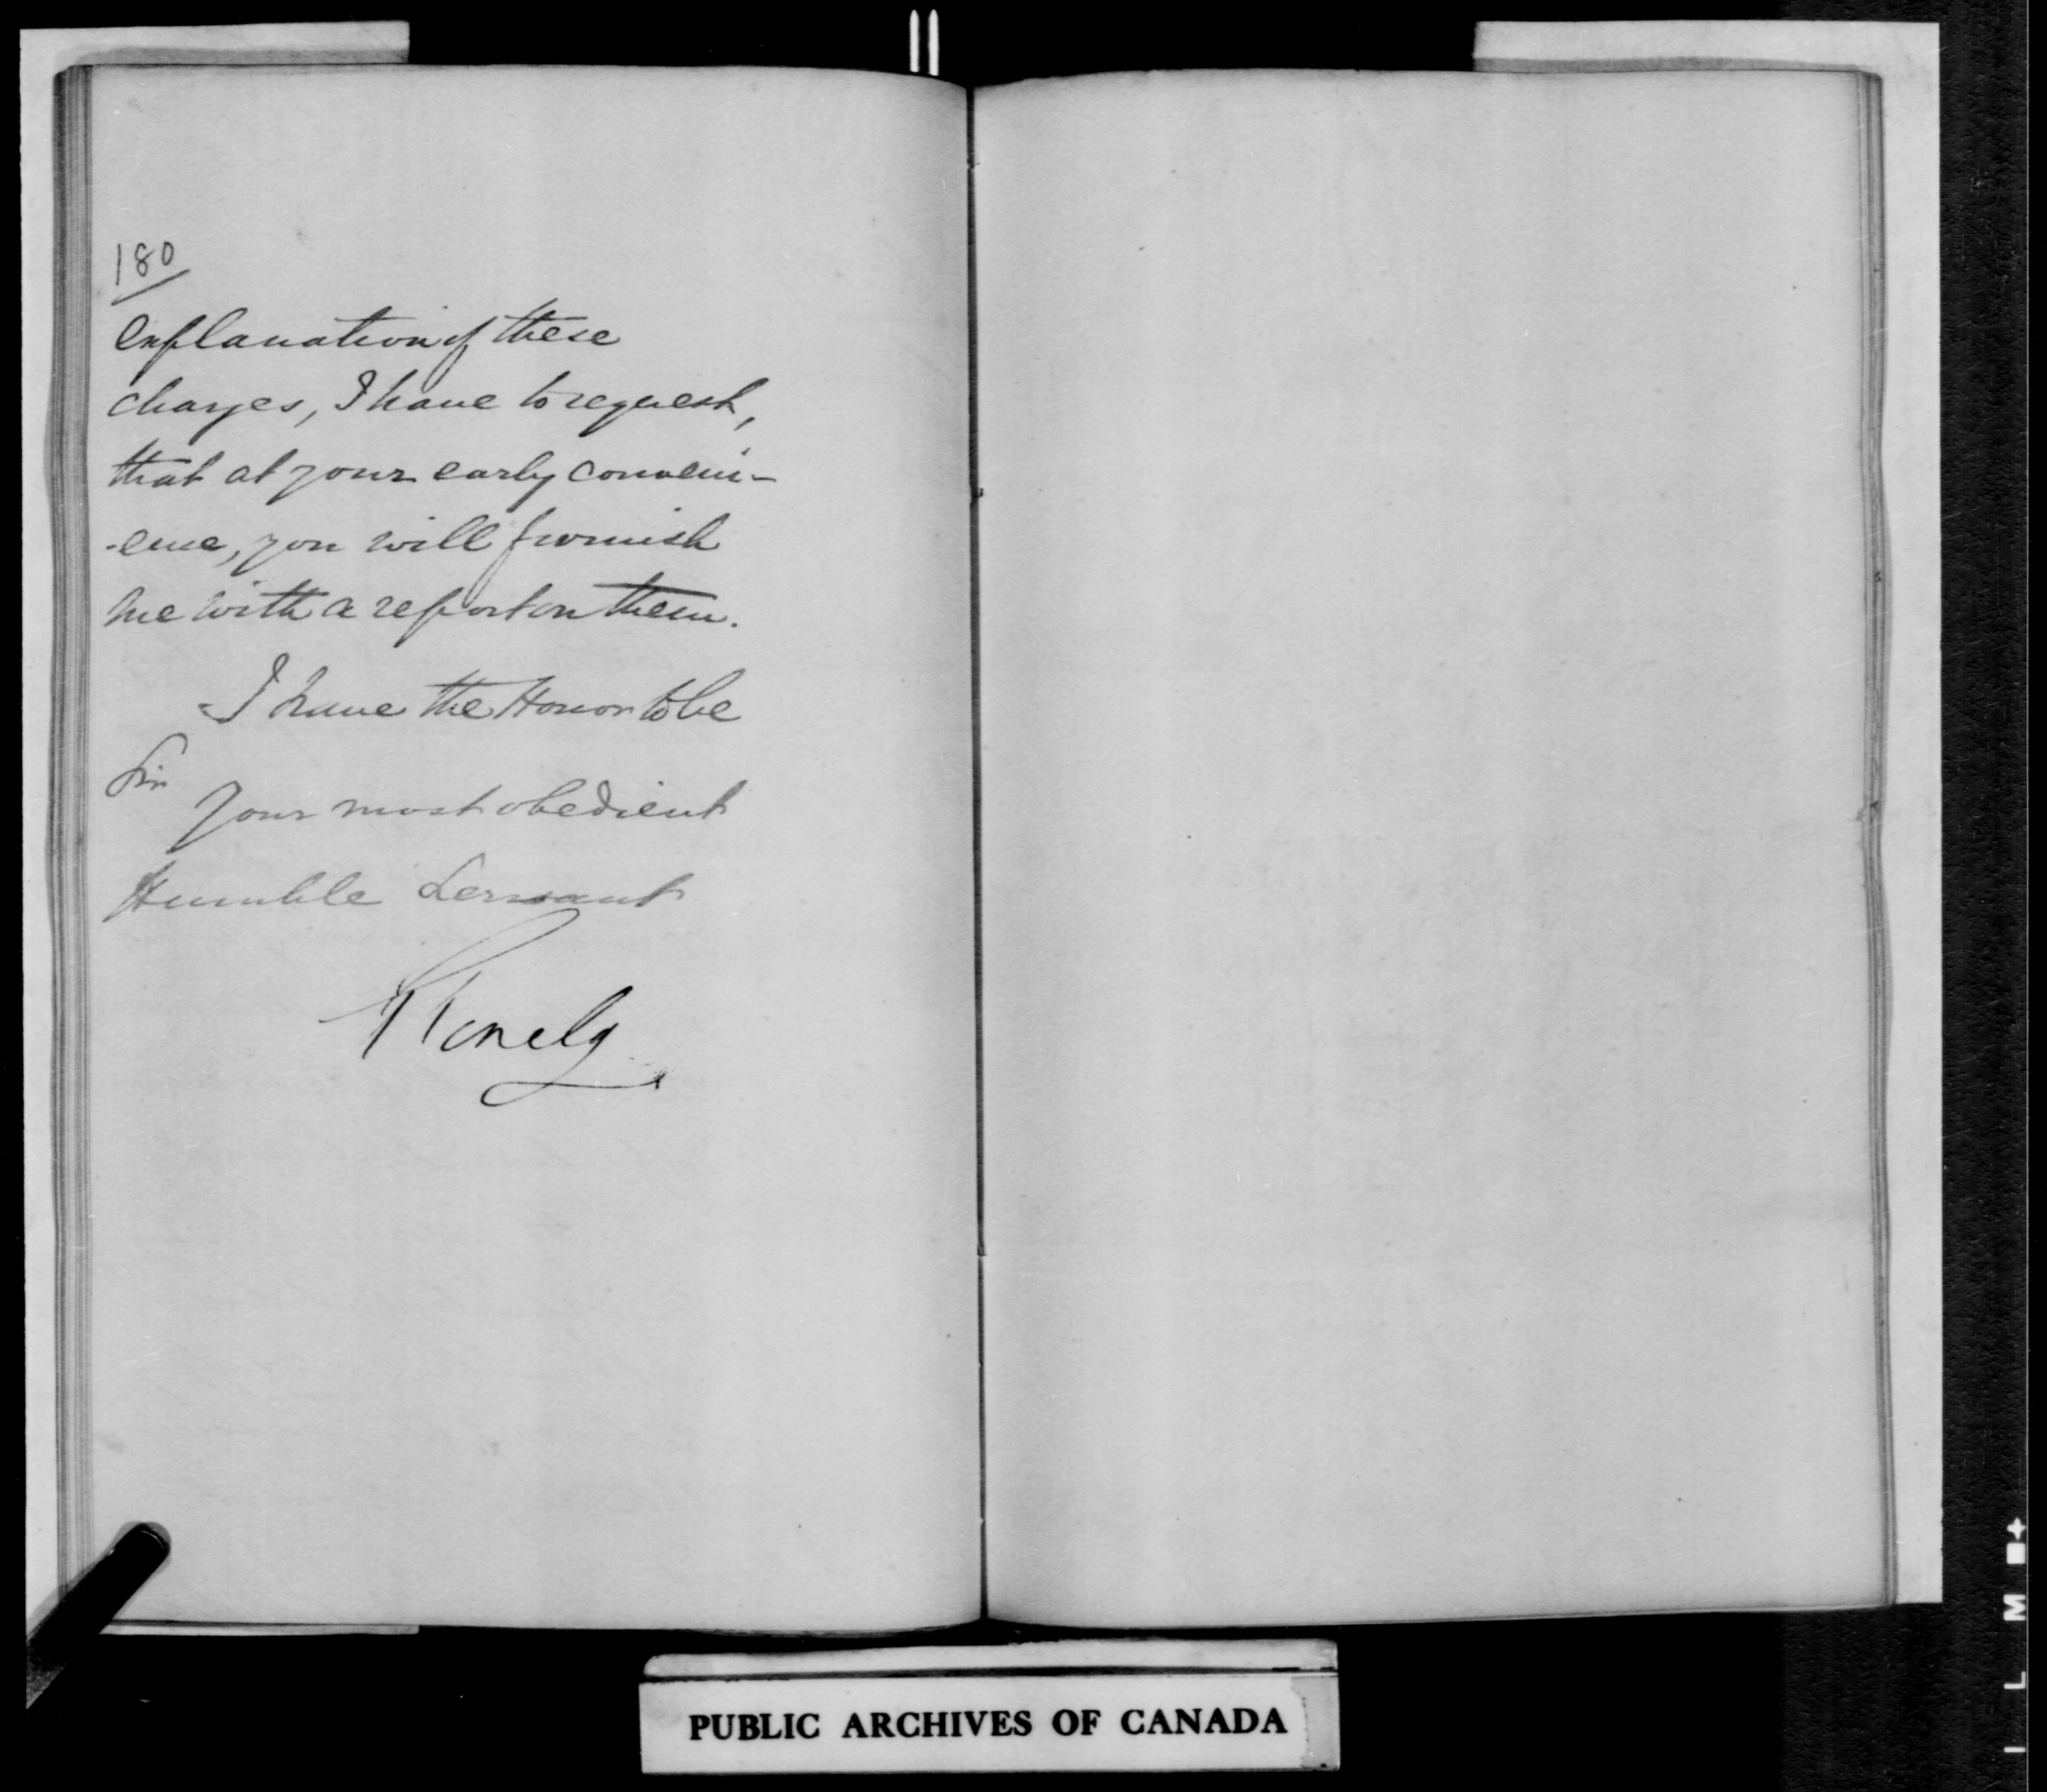 180
explanation of these
charges, I have to request,
that at your early conveni-
-ence, you will furnish
me with a report on them.
I have the Honor to be
Sir
Your most obedient
Humble Servant
Glenelg
PUBLIC ARCHIVES OF CANADA